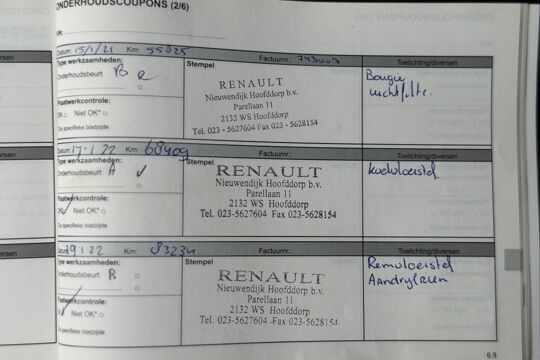 ONDERHOUDSCOUPONS (2/6)
Datum: 15/1/21 Km: 55825 Factuurnr.:
Type werkzaamheden: Stempel Toelichting/diversen
Onderhoudsbeurt B
Plaatwerkcontrole:
OK □ Niet OK* □
Zie specifieke bladzijde
RENAULT
Nieuwendijk Hoofddorp b.v.
Parellaan 11
2132 WS Hoofddorp
Tel. 023-5627604 Fax 023-5628154
Bougie
luchtfiltr.
Datum: 17-1 22 Km: 68409 Factuurnr.:
Type werkzaamheden: Stempel Toelichting/diversen
Onderhoudsbeurt A
Plaatwerkcontrole:
Niet OK* □
Zie specifieke bladzijde
RENAULT
Nieuwendijk Hoofddorp b.v.
Parellaan 11
2132 WS Hoofddorp
Tel. 023-5627604 Fax 023-5628154
koelvloeistof
Km: 83234 Factuurnr.:
Type werkzaamheden: Stempel Toelichting/diversen
Onderhoudsbeurt B
Plaatwerkcontrole:
Niet OK* □
Zie specifieke bladzijde
RENAULT
Nieuwendijk Hoofddorp b.v.
Parellaan 11
2132 WS Hoofddorp
Tel. 023-5627604 Fax 023-5628154
Remvloeistof
Aandrijfriem
6.9